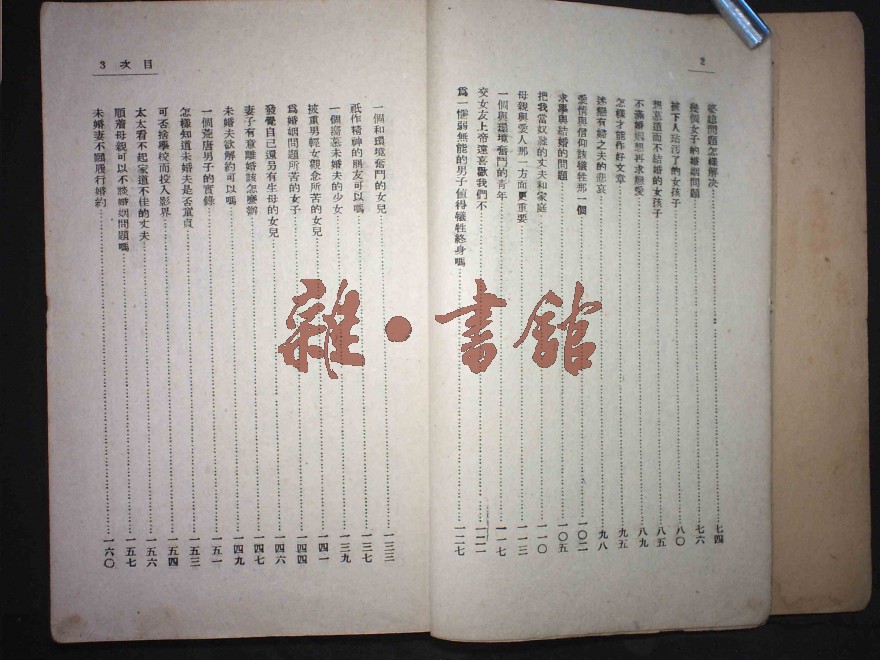 2
婆媳問題怎樣解决……七四
幾個女子的婚姻問題……七六
被下人玷污了的女孩子……八〇
想墓道而不結婚的女孩子……八五
不滿婚姻想再求戀愛……八九
怎樣才能作好文章……九五
迷戀有婦之夫的悲哀……九八
愛情與信仰該犧牲那一個……一〇二
求學與結婚的問題……一〇五
把我當奴隸的丈夫和家庭……一一〇
母親與愛人那一方面更重要……一一三
一個與環境奮鬥的青年……一一七
交女友上帝還喜歡我們不……一二一
爲一懦弱無能的男子值得犧牲終身嗎……一二七
目次 3
一個和環境奮鬥的女兒……一三三
祇作精神的朋友可以嗎……一三七
一個獨墓未婚夫的少女……一三九
被重男輕女觀念所苦的女兒……一四一
爲婚姻問題所苦的女子……一四四
發覺自己還另有生母的女兒……一四六
妻子有意離婚該怎麼辦……一四七
未婚夫欲解約可以嗎……一四九
一個荒唐男子的實錄……一五一
怎樣知道未婚夫是否童貞……一五三
可否捨學校而投入影界……一五四
太太看不起家道不佳的丈夫……一五六
順着母親可以不談婚姻問題嗎……一五七
未婚妻不願履行婚約……一六〇
雜·書館